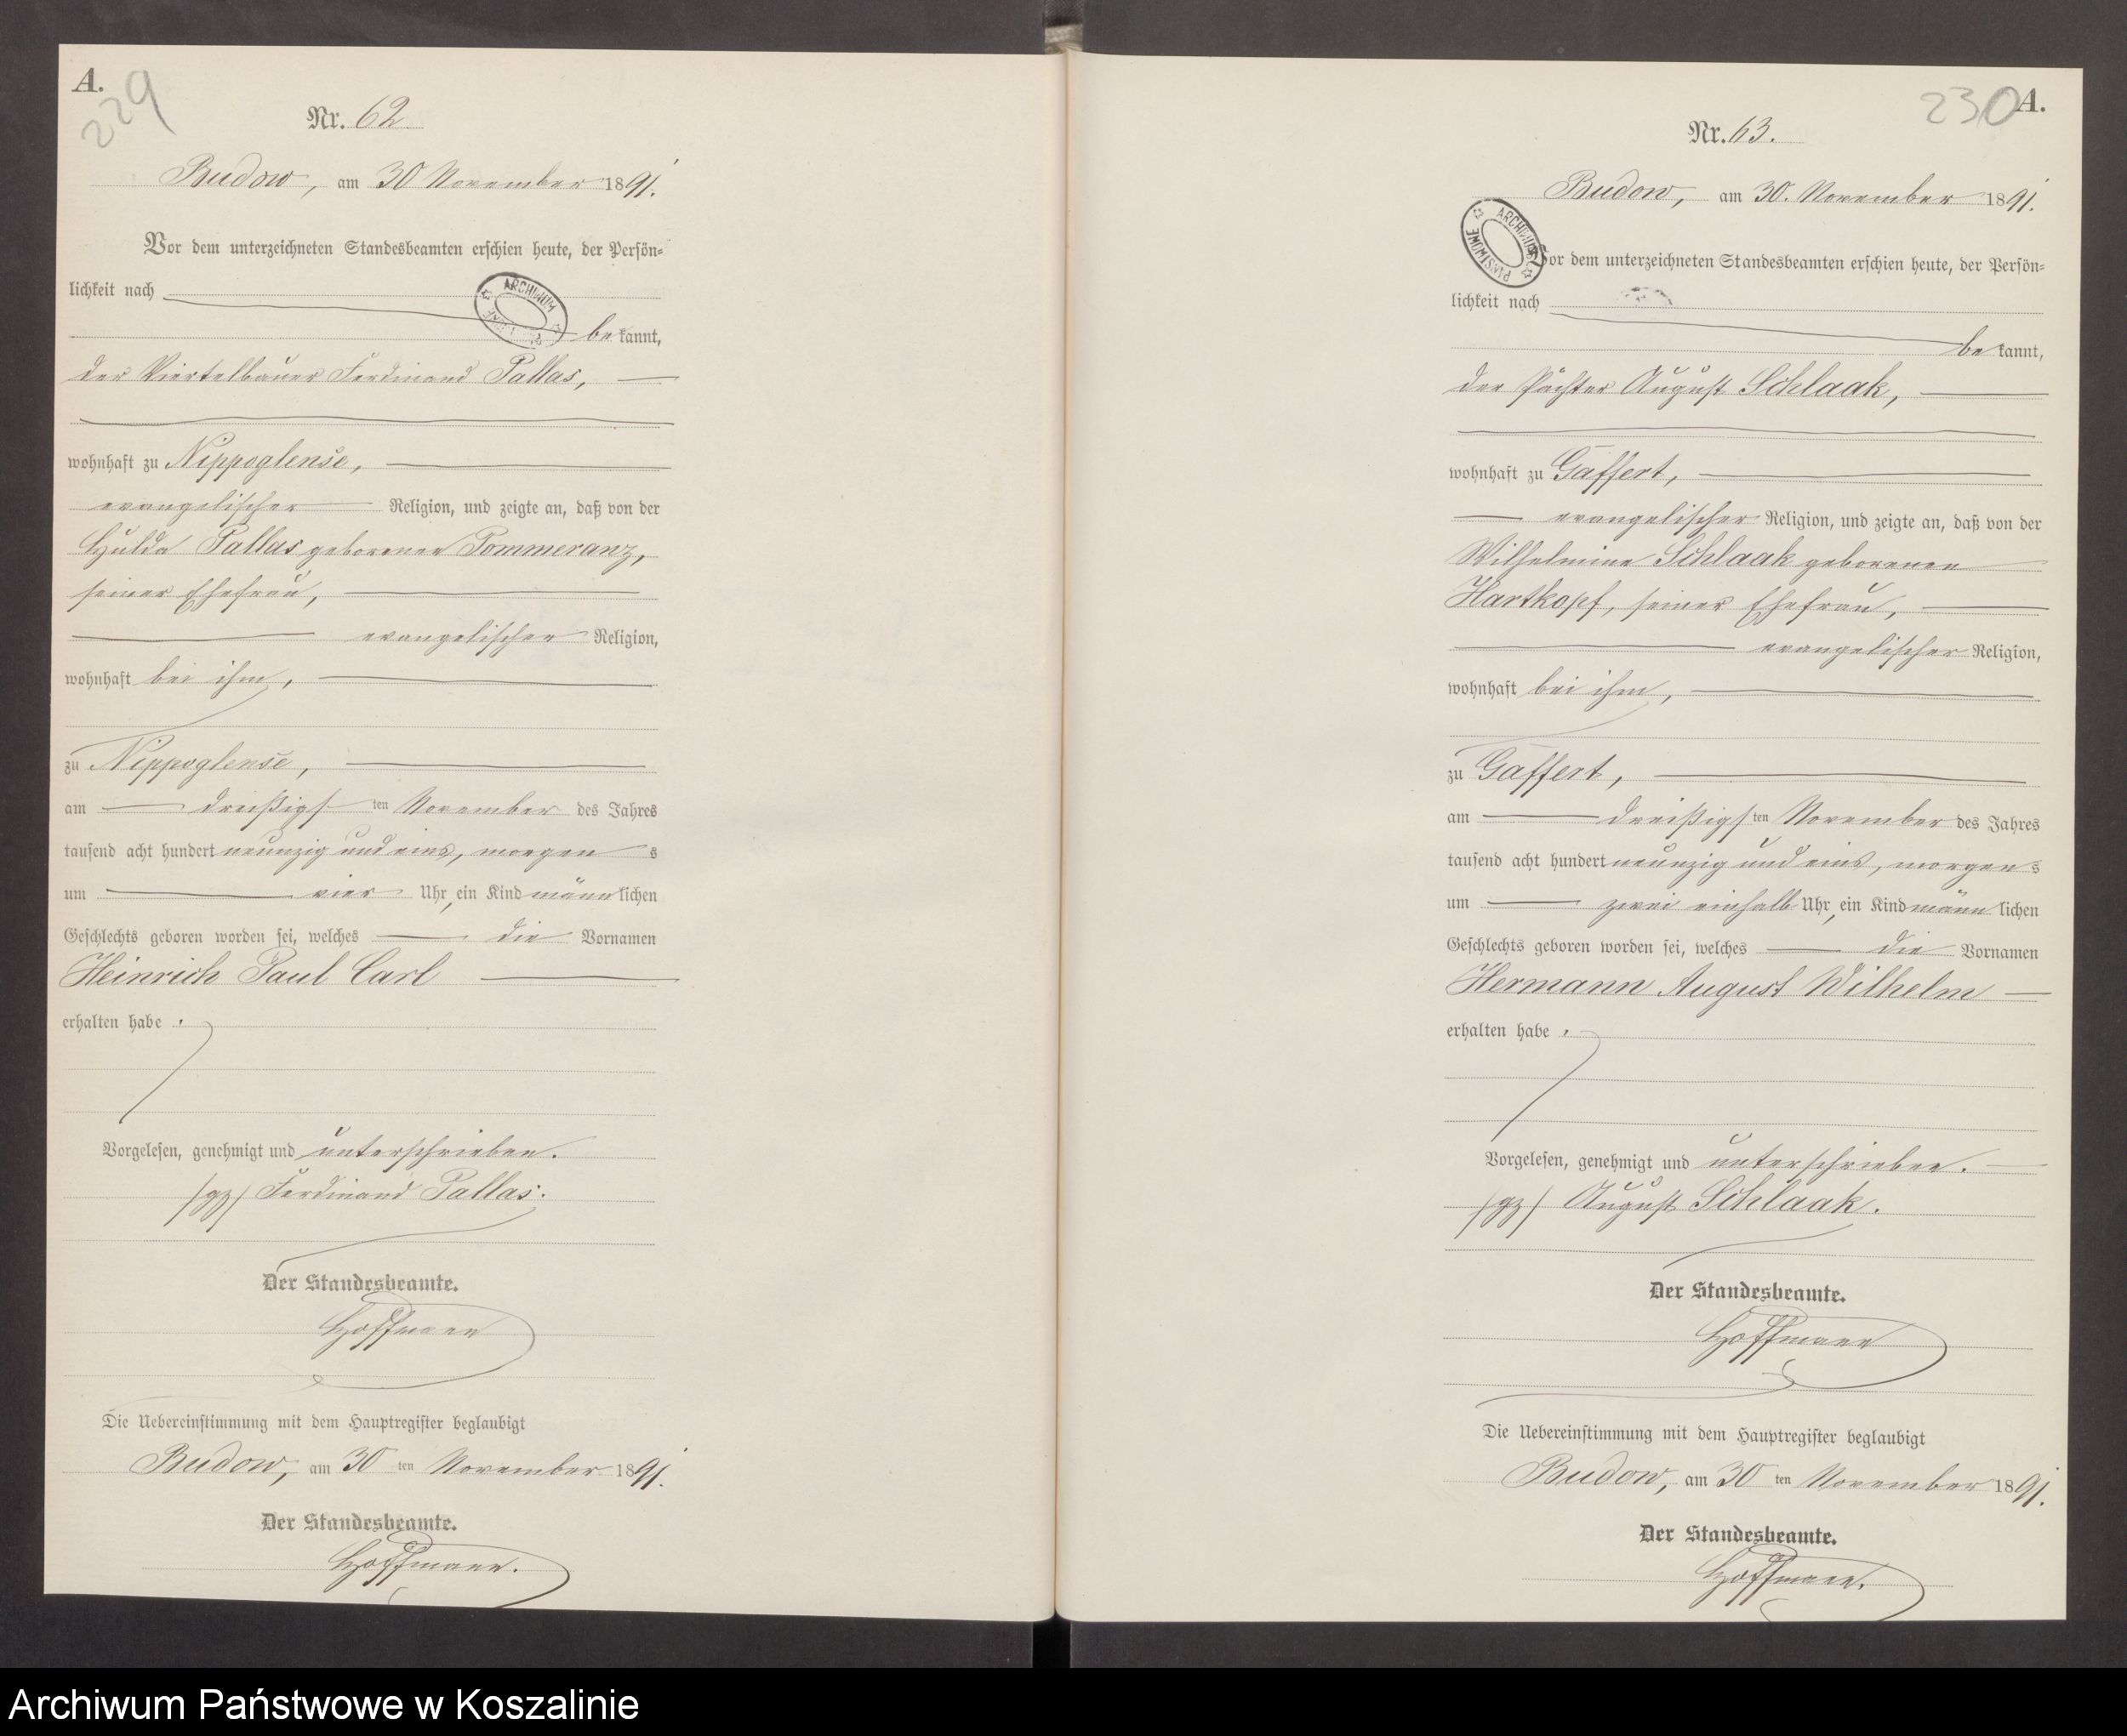 A.
229
Nr. 62
Budow, am 30 November 1891.
Vor dem unterzeichneten Standesbeamten erschien heute, der Persön-
lichkeit nach
ARCHIWUM
bekannt,
der Viertelbauer Ferdinand Pallas,
wohnhaft zu Nippoglense,
evangelischer Religion, und zeigte an, daß von der
Hulda Pallas geborenen Pommeranz,
seiner Ehefrau,
evangelischer Religion,
wohnhaft bei ihm,
zu Nippoglense,
am dreißigsten November des Jahres
tausend acht hundert neunzig und eins, morgens
um vier Uhr, ein Kind männlichen
Geschlechts geboren worden sei, welches die Vornamen
Heinrich Paul Carl
erhalten habe.
Vorgelesen, genehmigt und unterschrieben.
/gz/ Ferdinand Pallas.
Der Standesbeamte.
Hoffmann
Die Uebereinstimmung mit dem Hauptregister beglaubigt
Budow, am 30 ten November 1891.
Der Standesbeamte.
Hoffmann.
230
A.
Nr. 63.
Budow, am 30. November 1891.
ARCHIWUM PAŃSTWOWE
Vor dem unterzeichneten Standesbeamten erschien heute, der Persön-
lichkeit nach
bekannt,
der Pächter August Schlaak,
wohnhaft zu Gaffert,
evangelischer Religion, und zeigte an, daß von der
Wilhelmine Schlaak geborenen
Hartkopf, seiner Ehefrau,
evangelischer Religion,
wohnhaft bei ihm,
zu Gaffert,
am dreißigsten November des Jahres
tausend acht hundert neunzig und eins, morgens
um zwei einhalb Uhr, ein Kind männlichen
Geschlechts geboren worden sei, welches die Vornamen
Hermann August Wilhelm
erhalten habe.
Vorgelesen, genehmigt und unterschrieben.
/gz/ August Schlaak.
Der Standesbeamte.
Hoffmann
Die Uebereinstimmung mit dem Hauptregister beglaubigt
Budow, am 30 ten November 1891.
Der Standesbeamte.
Hoffmann.
Archiwum Państwowe w Koszalinie